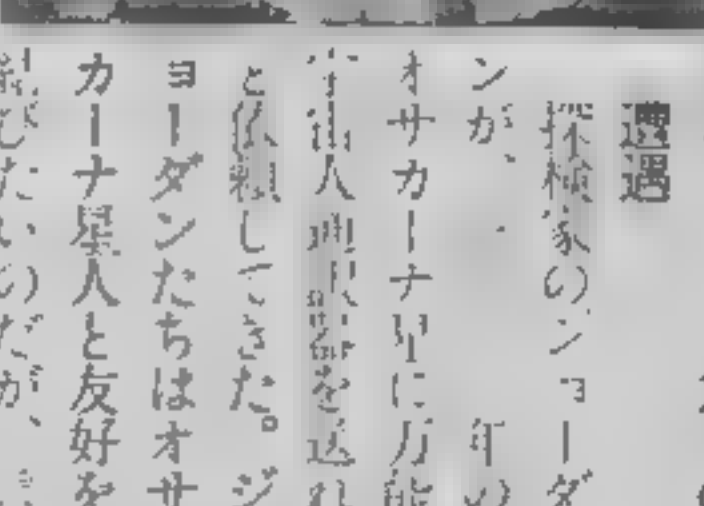 遭遇
探検家のジョーダ
ンが、 年の
オサカーナ星に万能
宇宙人 翻訳 を送れ
と依頼してきた。ジ
ョーダンたちはオサ
カーナ星人と友好を
結びたいのだが、